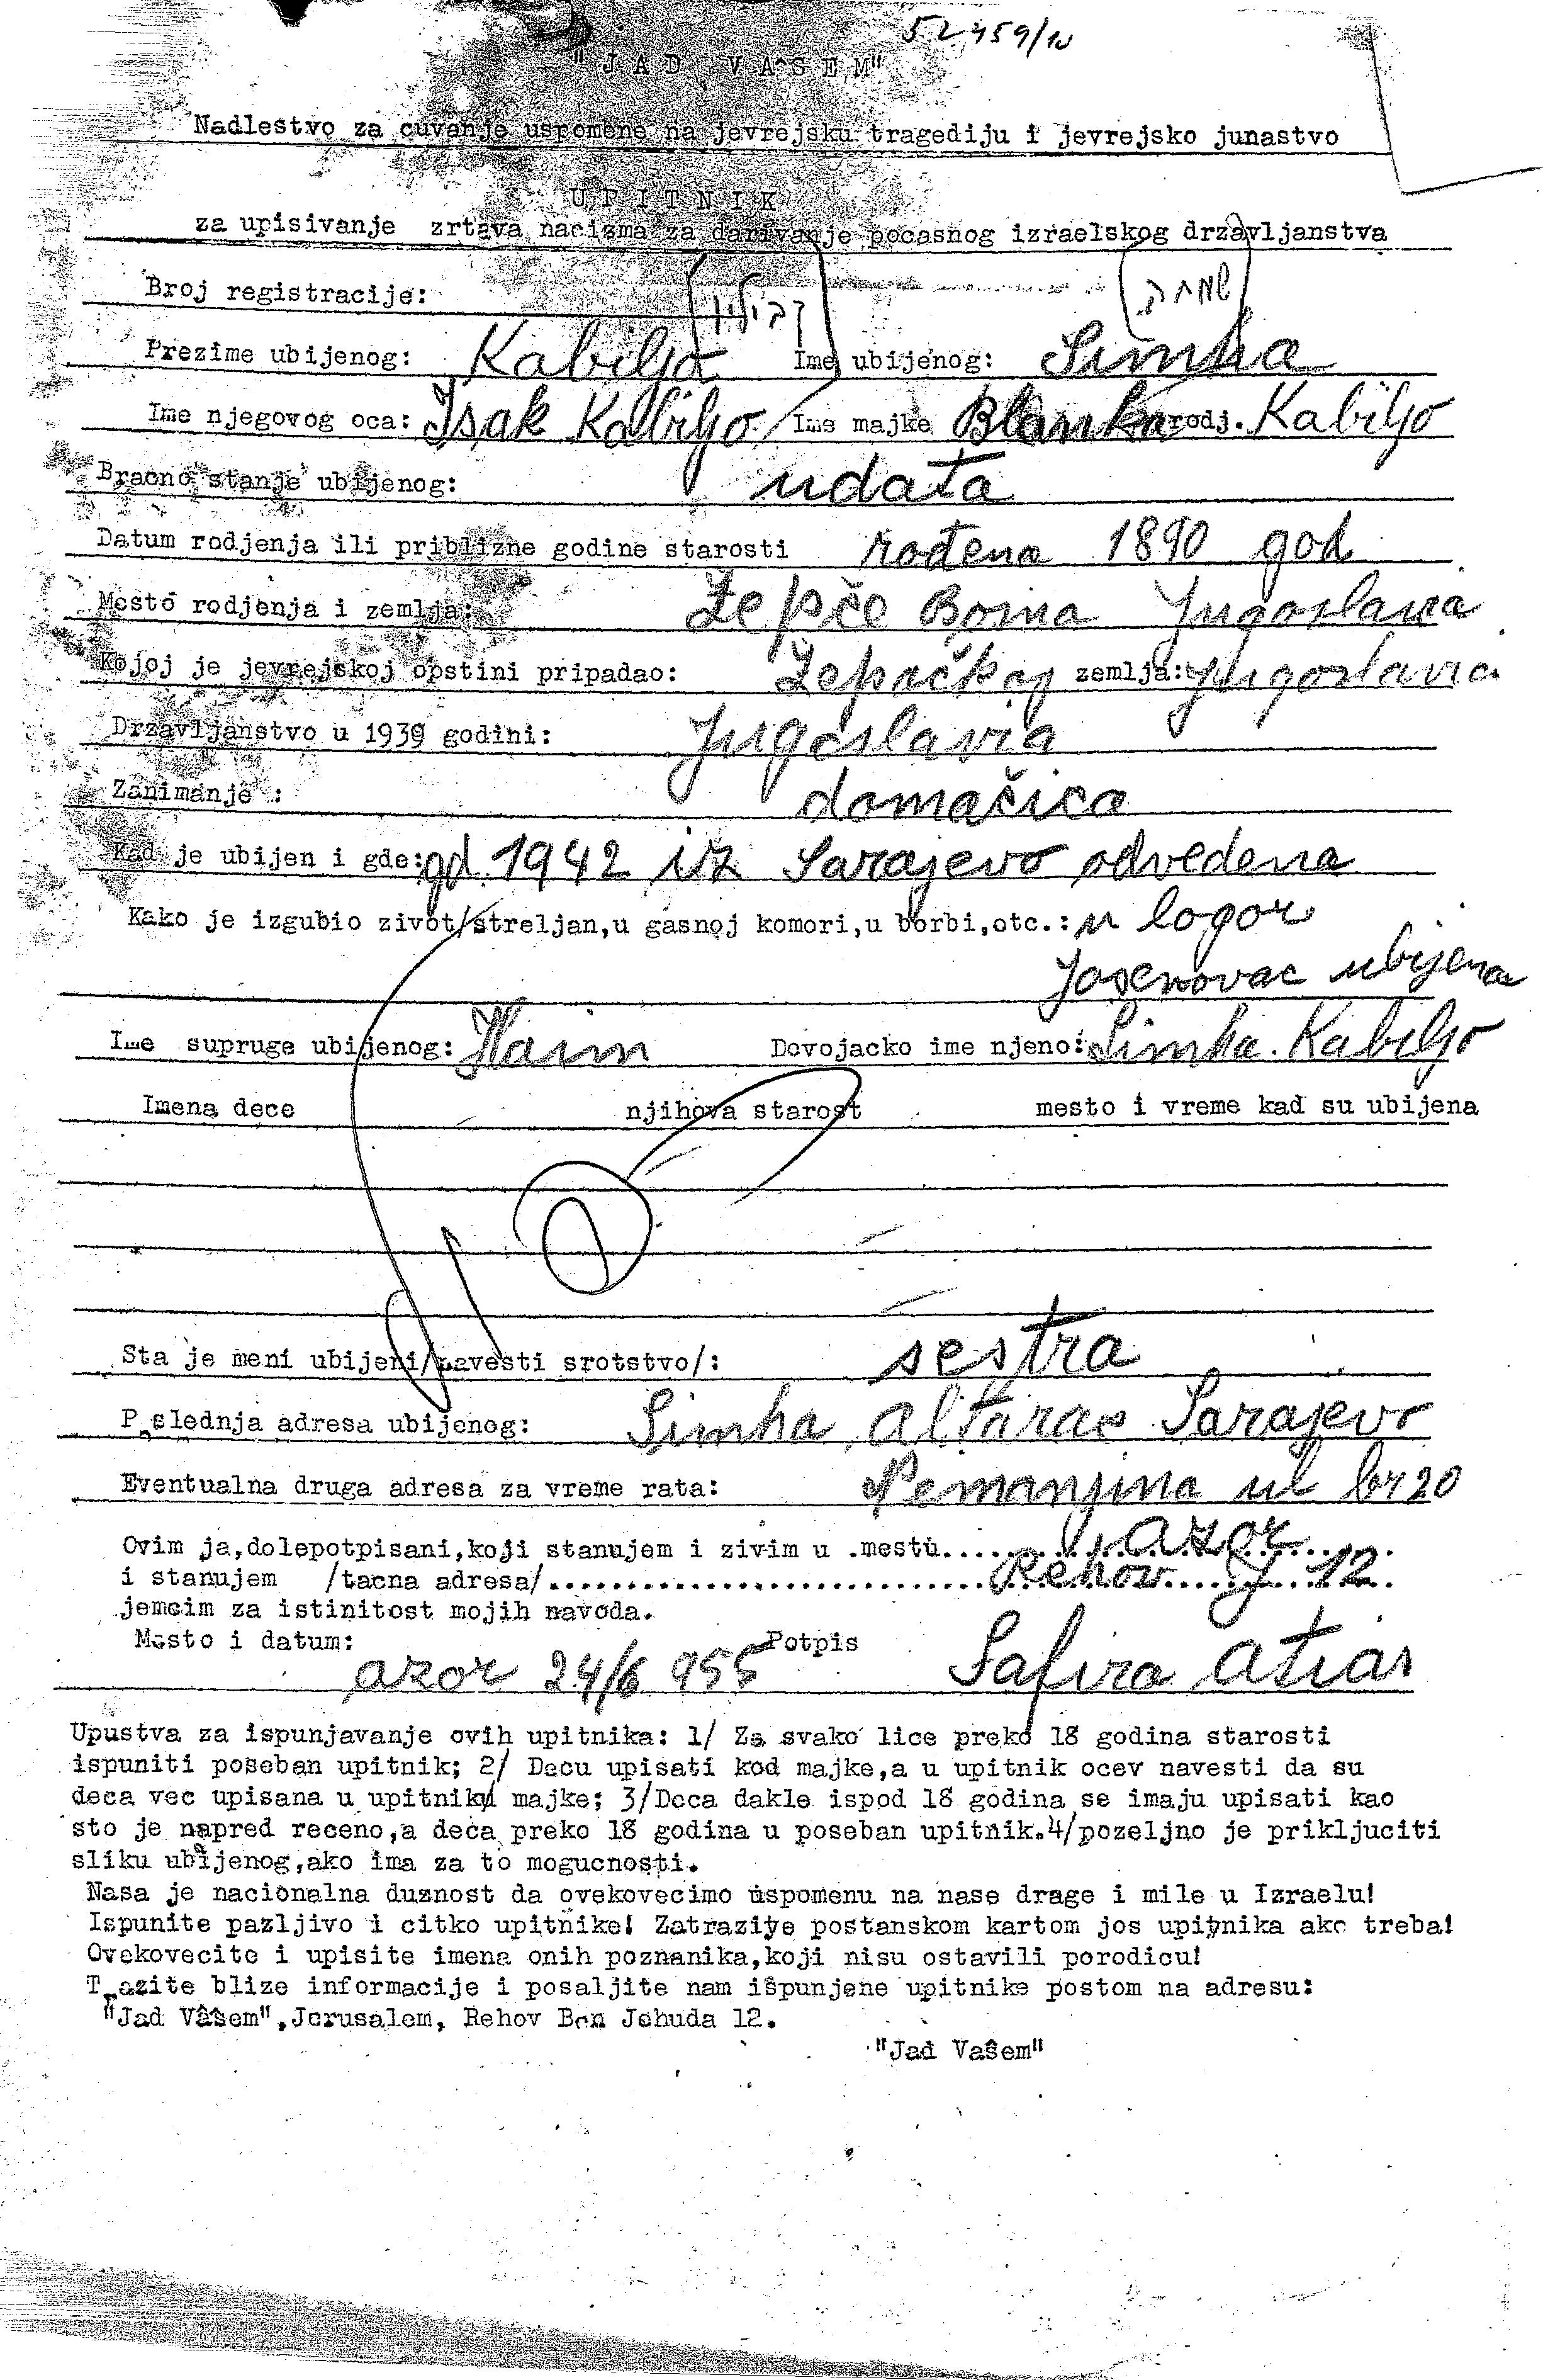 52459/10
"JAD VAŠEM"
Nadlestvo za cuvanje uspomene na jevrejsku tragediju i jevrejsko junastvo
UPITNIK
za upisivanje zrtava nacizma za darivanje pocasnog izraelskog drzavljanstva
Broj registracije:
קביליו שמחה
Prezime ubijenog: Kabiljo Ime ubijenog: Simha
Ime njegovog oca: Isak Kabiljo/Ime majke Blanka rodj. Kabiljo
Bracno stanje ubijenog: udata
Datum rodjenja ili priblizne godine starosti rođena 1890 god
Mesto rodjenja i zemlja: Žepče Bosna Jugoslavia
Kojoj je jevrejskoj opstini pripadao: Žepačkoj zemlja: Jugoslavia
Drzavljanstvo u 1939 godini: Jugoslavia
Zanimanje : domačica
Kad je ubijen i gde: god 1942 iz Sarajevo odvedena
Kako je izgubio zivot/streljan,u gasnoj komori,u borbi,otc.: u logor
Jasenovac ubijena
Ime supruge ubijenog: Haim Dovojacko ime njeno: Simha. Kabiljo
Imena dece njihova starost mesto i vreme kad su ubijena
Sta je meni ubijeni/navesti srotstvo/: sestra
Poslednja adresa ubijenog: Simha Altarac Sarajevo
Eventualna druga adresa za vreme rata: Nemanjina ul br 20
Ovim ja,dolepotpisani,koji stanujem i zivim u .mestu.....Azor.....
i stanujem /tacna adresa/..............................Rehov J 12.
jemcim za istinitost mojih navoda.
Mesto i datum: Potpis
azor 24/6 955 Safira Atias
Upustva za ispunjavanje ovih upitnika: 1/ Za svako lice preko 18 godina starosti
ispuniti poseban upitnik; 2/ Decu upisati kod majke,a u upitnik ocev navesti da su
deca vec upisana u upitniku majke; 3/Doca dakle ispod 18 godina se imaju upisati kao
sto je napred receno,a deca preko 18 godina u poseban upitnik.4/pozeljno je prikljuciti
sliku ubijenog,ako ima za to mogucnosti.
Nasa je nacionalna duznost da ovekovecimo uspomenu na nase drage i mile u Izraelu!
Ispunite pazljivo i citko upitnike! Zatrazite postanskom kartom jos upitnika ako treba!
Ovekovecite i upisite imena onih poznanika,koji nisu ostavili porodicu!
Trazite blize informacije i posaljite nam ispunjene upitnike postom na adresu:
"Jad Vašem",Jerusalem, Rehov Ben Jehuda 12.
"Jad Vašem"